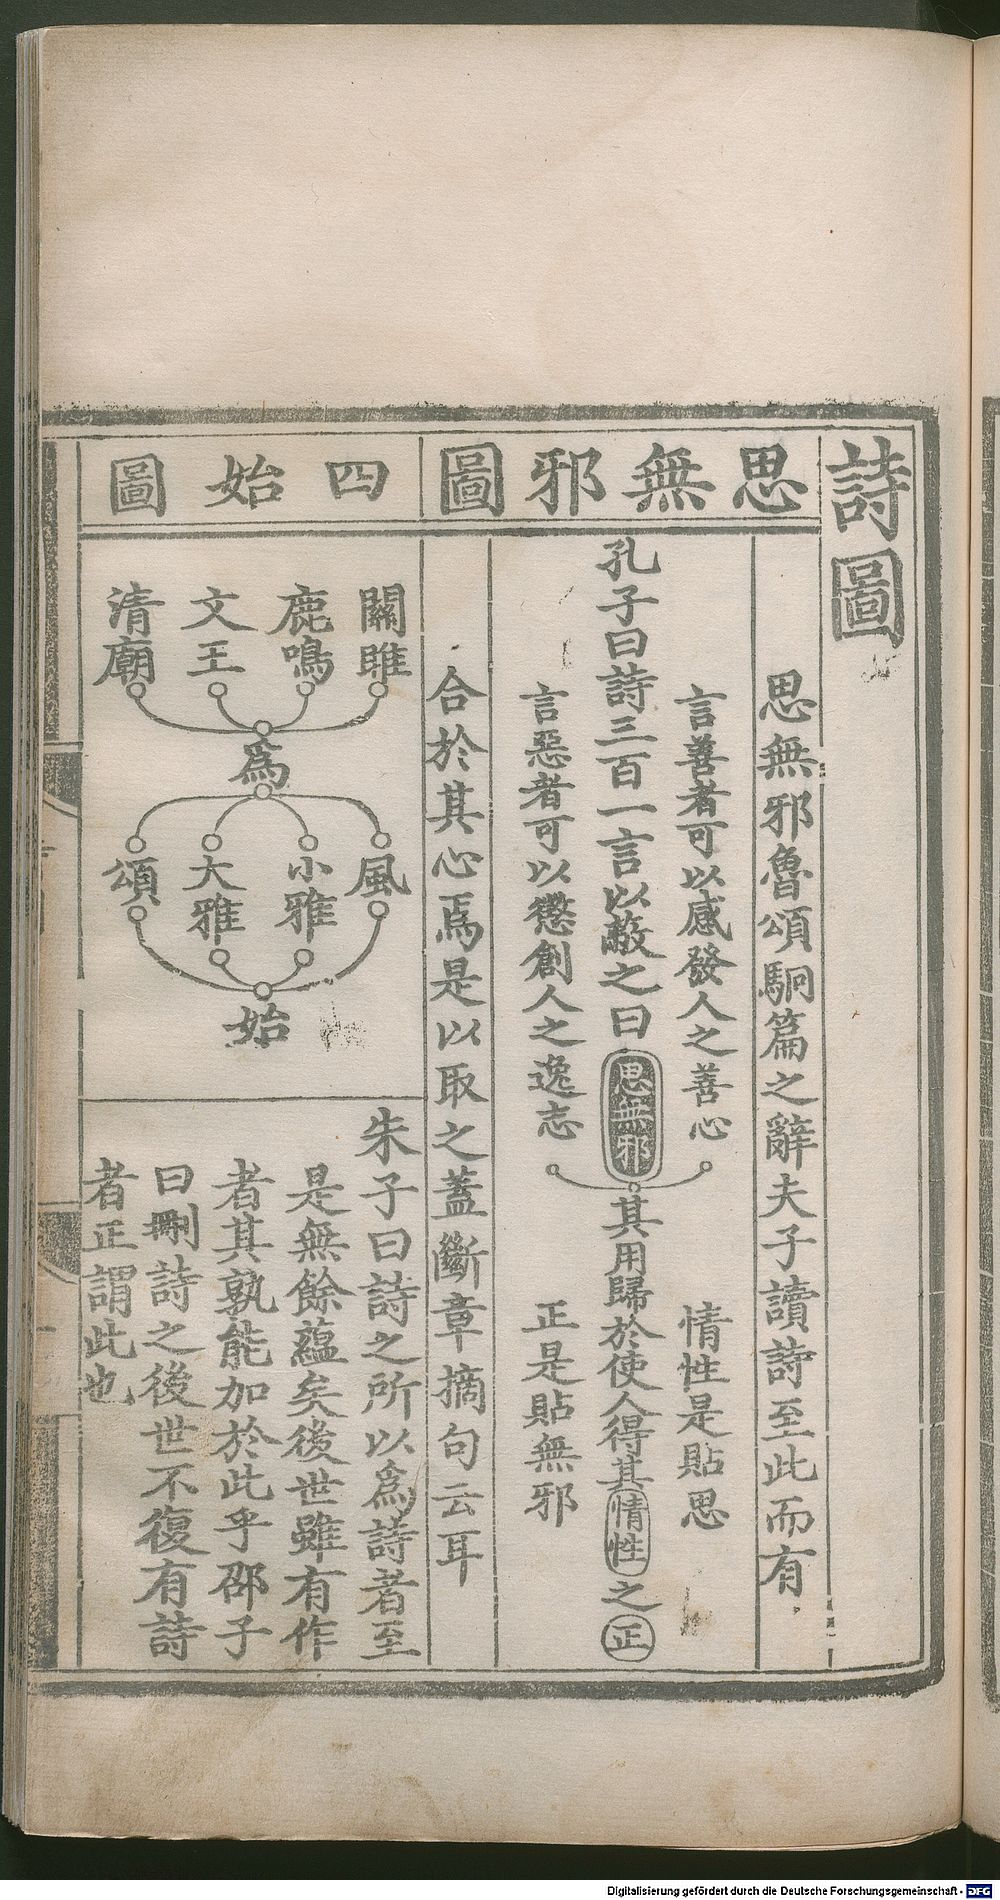 詩圖
思無邪圖
思無邪魯頌駉篇之辭夫子讀詩至此而有
言善者可以感發人之善心
情性是貼思
孔子曰詩三百一言以蔽之曰思無邪其用歸於使人得其情性之正
言惡者可以懲創人之逸志
正是貼無邪
合於其心焉是以取之蓋斷章摘句云耳
四始圖
關雎
鹿鳴
文王
清廟
為
風
小雅
大雅
頌
始
朱子曰詩之所以為詩者至
是無餘蘊矣後世雖有作
者其孰能加於此乎邵子
曰刪詩之後世不復有詩
者正謂此也
Digitalisierung gefördert durch die Deutsche Forschungsgemeinschaft - DFG